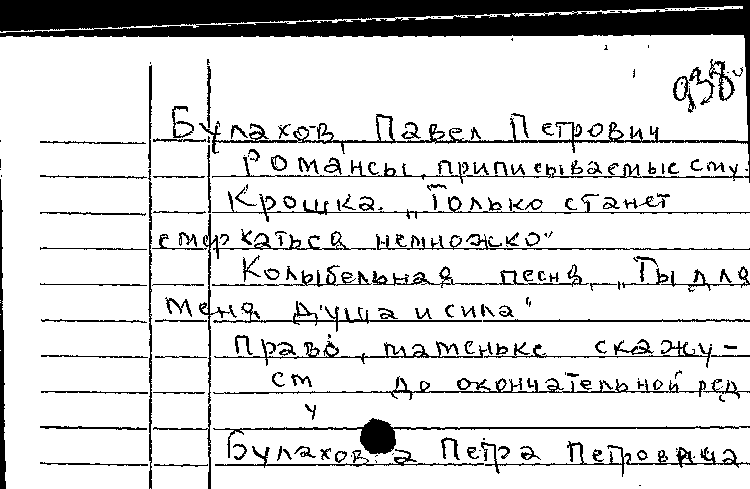 938
Булахов, Павел Петрович
Романсы, приписываемые ему:
Крошка. „Только станет
смеркаться немножко"
Колыбельная песня. „Ты для
меня душа и сила"
Право, маменьке скажу –
см до окончательной ред
у
Булахова Петра Петровича